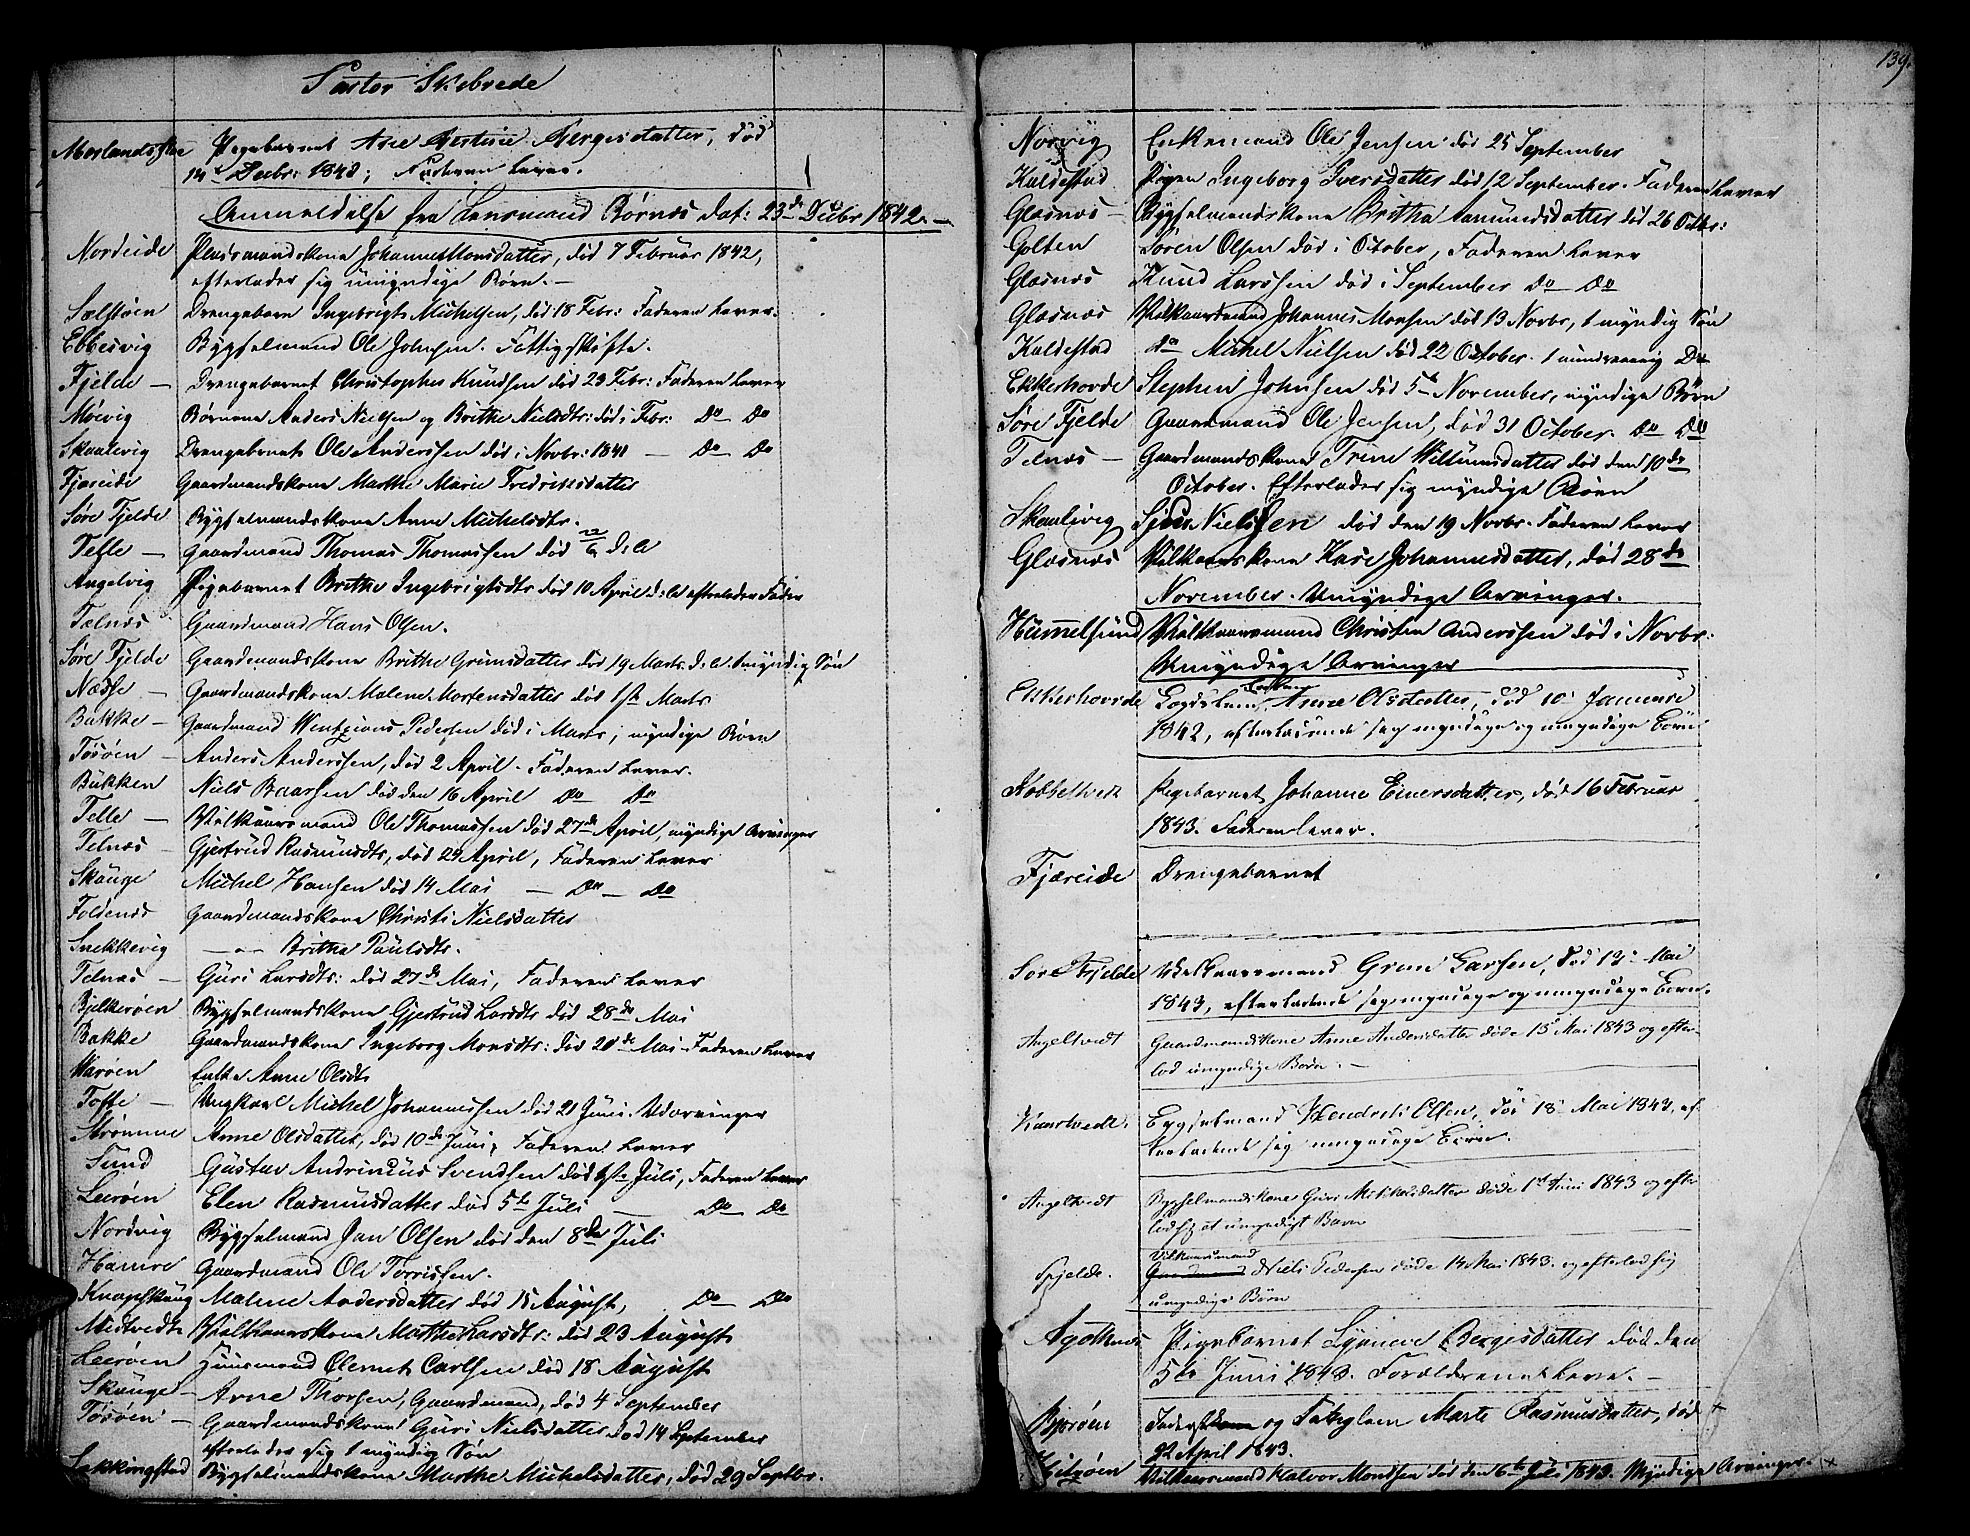 Pastor Skibrede
Morlandsstøe Pigebarnet Ane Bertine Børgesdatter, død
14de Decbr: 1842; Faderen lever.
Anmeldelse fra Lensmand Børnes dat: 23de Decbr 1842. —
Nordeide Pladsmandskone Johanne Monsdatter, død 7 Februar 1842,
efterlader sig umyndige Børn. —
Solstøen Drengebarn Ingebrigt Michelsen, død 18 Febr: Faderen lever.
Ebbesvig Bygselmand Ole Johnsen. Fattigskifte.
Fjelde — Drengebarnet Christopher Knudsen død 23 Febr: Faderen lever
Møvig Børnene Anders Nielsen og Brithe Nielsdtr: død i Febr: Do Do
Skaalevig Drengebarnet Ole Anderssen død i Novbr: 1841 — Do Do
Fjæreide Gaardmandskone Marthe Marie Fredriksdatter
Søre Fjelde Bygselmandskone Anne Michelsdtr.
Telle — Gaardmand Thomas Thomassen død 22/6 d: A
Angelvig Pigebarnet Brithe Ingebrigtsdtr død 10 April d: A efterlader Fader
Telnæs Gaardmand Hans Olsen.
Søre Fjelde Gaardmandskone Brithe Grimsdatter død 19 Marts. d: A 1 myndig Søn
Nesse — Gaardmandskone Malene Mortensdatter død 1ste Marts
Bakke — Gaardmand Wentzions Pedersen død i Marts, myndige Børn
Tøsøen — Anders Anderssen, død 2 April. Faderen lever.
Bukken Niels Baarsen død den 16 April Do Do
Telle — Vilkaarsmand Ole Thomassen død 27de April, myndige Arvinger
Telnæs — Gjertrud Rasmusdtr, død 29 April, Faderen lever
Skauge Michel Hansen død 14 Mai — Do — Do
Foldenes Gaardmandskone Christi Nielsdatter
Snekkevig — " — Brithe Paulsdtr.
Telnæs — Guri Larsdtr: død 27de Mai, Faderen lever
Bjelkerøen Bygselmandskone Gjertrud Larsdtr død 28de Mai
Bakke Gaardmandskone Ingeborg Monsdtr: død 20de Mai Faderen lever
Warøen Enke Anne Olsdtr
Tofte — Ungkarl Michel Johannessen død 21 Juni. Udarvinger
Strømme Anne Olsdatter, død 10de Juni, Faderen lever
Sund Gustav Andrineus Svendsen død 1ste Juli, Faderen lever
Leerøen Elen Rasmusdatter død 5te Juli — Do Do
Nordvig Bygselmand Jan Olsen død den 8de Juli
Hamre Gaardmand Ole Torrissen.
Knapskaug Malene Andersdatter død 15 August, Do — Do
Midtvedt Vilkaarskone Marthe Larsdtr: død 23 August
Leerøen Huusmand Olemet Carlsen død 18 August
Skauge — Arne Thorsen, Gaardmand, død 4 September
Tøsøen — Gaardmandskone Guri Nielsdatter død 14 September
efterlader sig 1 myndig Søn
Lekkingstad Bygselmandskone Marthe Michelsdatter, død 29 Septbr.
139.
Norvig Enkemand Ole Jensen død 25 September
Kaldestad Pigen Ingeborg Iversdatter død 12 September. Faderen lever
Glesnæs — Bygselmandskone Britha Aamundsdatter død 26 Octbr:
Golten Søren Olsen død i October, Faderen lever
Glesnæs Knud Larssen død i September Do — Do
Glesnæs Vilkaarsmand Johannes Monsen død 13 Novbr, 1 myndig Søn
Kaldestad do Michel Nielsen død 22 October. 1 Do
Ekkerhovde Stephen Johnsen død 5te November, myndige Børn
Søre Fjelde Gaardmand Ole Jensen, død 31 October. Do Do
Telnæs — Gaardmandskone Trine Willumsdatter død den 10de
October. Efterlader sig myndige Børn
Skaalevig Sjur Nielssen død den 19 Novbr. Faderen lever
Glesnæs Vilkaarskone Kari Johannesdatter, død 28de
November. Umyndige Arvinger.
Hummelsund Vilkaarsmand Christen Anderssen død i Novbr:
Umyndige Arvinger
Ekkerhovde Anne Olsdatter, død 10 Januari
1842, efterladende sig myndige og umyndige Børn
Kobbeltvedt Pigebarnet Johanne Einersdatter, død 16 Februar
1843. Faderen lever.
Fjæreide Drengebarnet
Søre Fjelde Vilkaarsmand Grim Larsen, død 13 Mai
1843, efterladende sig myndige og umyndige Børn.
Angeltvedt Gaardmandskone Anne Andersdatter døde 15 Mai 1843 og efter-
lod umyndige Børn. —
Kaartvedt. Bygselmand Hendrik Olsen, død 18 Mai 1843, ef-
terladende sig umyndige Børn.
Angeltvedt Bygselmandskone Guri Mikkelsdatter døde 1st Juni 1843 og efter
lod sig et umyndigt Barn
Vilkaarsmand
Spjelde. Gaardmand Niels Pedersen døde 14 Mai 1843. og efterlod sig
umyndige Børn
Agothnes Pigebarnet Synneve Børgesdatter død den
5te Juni 1843. Forældrene leve. —
Bjorøen og Marte Rasmusdatter, død
22 April 1843.
Hitsøen Vilkaarsmand Halvor Mondsen død den 6te Juli 1843. Myndige Arvinger.